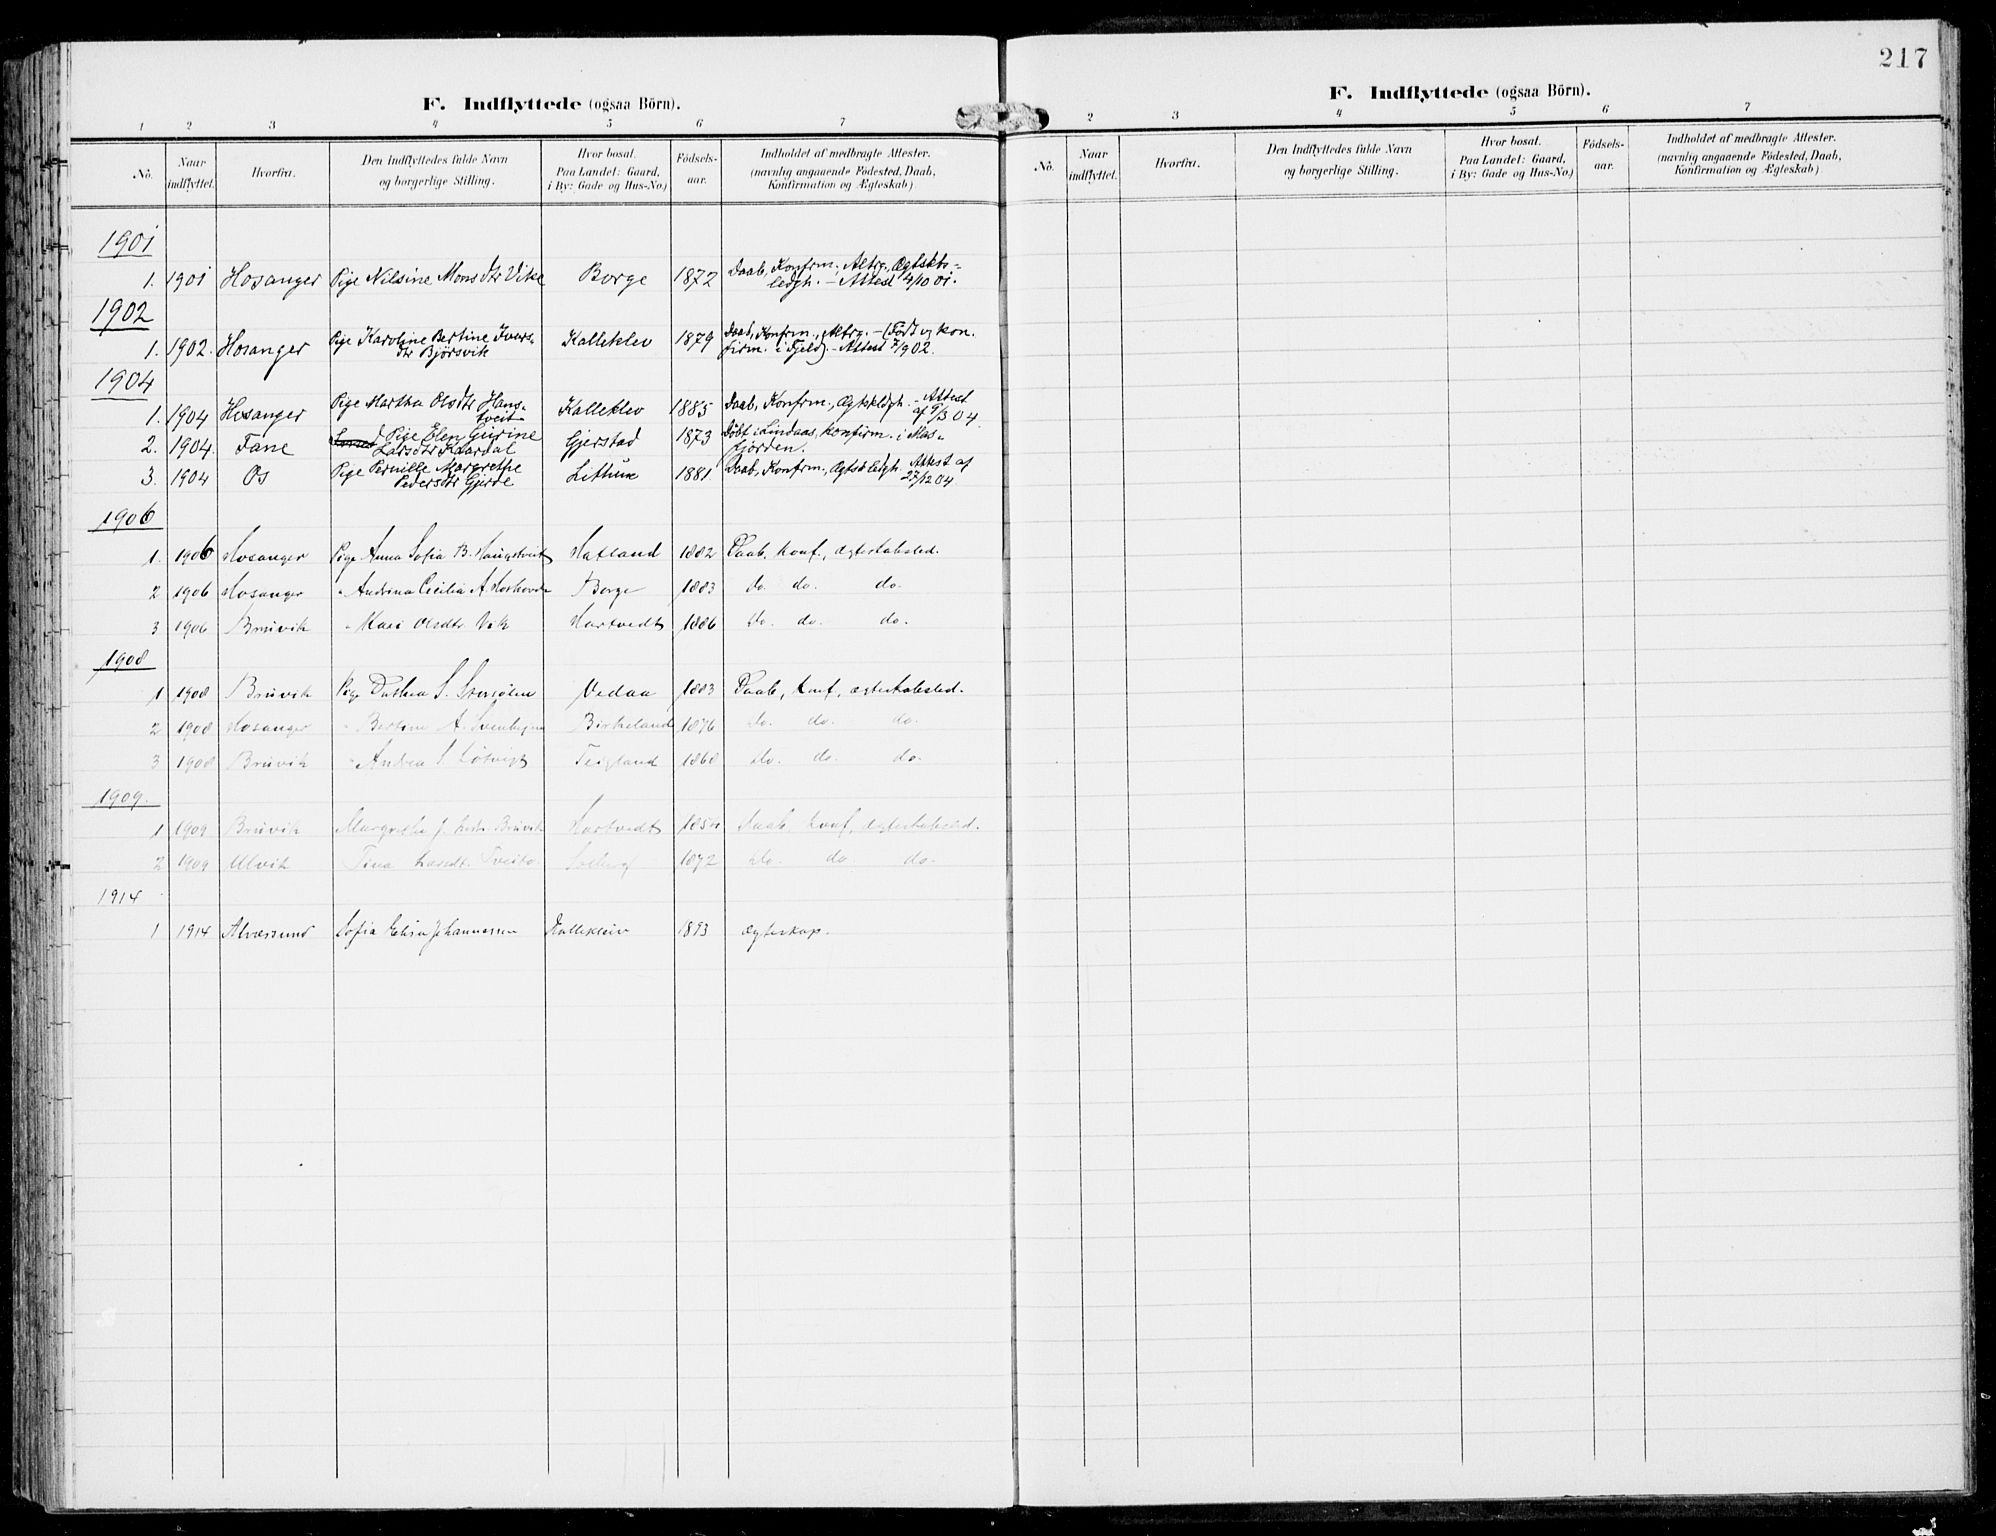 217
F. Indflyttede (ogsaa Börn).
1 2 3 4 5 6 7
No. Naar indflyttet. Hvorfra. Den Indflyttedes fulde Navn og borgerlige Stilling. Hvor bosat. Paa Landet: Gaard, i By: Gade og Hus-No.) Födsels-aar. Indholdet af medbragte Attester. (navnlig angaaende Födested, Daab, Konfirmation og Ægteskab)
1901
1. 1901 Hosanger Pige Nilsine Monsdtr Vike Borge 1872 Daab, Konfrm., Altrg., Ægtskbs-
ledgh. - Attest 4/10 01.
1902
1. 1902. Hosanger Pige Karoline Bertine Ivers- Kalleklev 1879 Daab, Konfrm., Altrg. - (Født og kon.
dtr Bjørsvik firm. i Fjeld). - Attest 7/9 02.
1904
1. 1904 Hosanger Pige Martha Olsdtr Hans- Kalleklev 1885 Daab, Konfrm., Ægtskldgh. - Attest
tveit af 9/3 04.
2. 1904. Fane Pige Elen Gurine Gjerstad 1873 Døbt i Lindaas, konfirm. i Mas-
Larsdtr Kaardal fjorden.
3. 1904 Os Pige Pernille Margrethe Lithun 1881 Daab, Konfrm., Ægtskbledgh. Attest af
Pedersdtr Gjerde 27/12 04
1906
1. 1906 Hosanger Pige Anna Sofia B. Haugstveit Hatland 1882 Daab, konf., ægteskabsled.
2 1906 Hosanger " Andrina Cecilia A Borge 1883 do. do. do.
3 1906 Bruvik " Kari Olsdtr Vik Hartvedt 1886 do. do. do.
1908
1 1908 Bruvik Pige Dorthea S. Vedaa 1883 Daab, konf, ægteskabsled.
2 1908 Hosanger " A. Birkeland 1876 do. do. do.
3 1908 Bruvik " Andrea S. Teigland 1868 do. do. do.
1909.
1 1909 Bruvik Margrethe J. Bruvik Hartvedt Daab konf, ægteskabsled.
2 1909 Ulvik Tina Larsdt. Tveito Solberg 1872 do. do. do.
1914
1 1914 Alversund Sofia Elisa Johannessen Kallekleiv 1893 ægteskap.
F. Indflyttede (ogsaa Börn).
2 3 4 5 6 7
No. Naar indflyttet. Hvorfra. Den Indflyttedes fulde Navn og borgerlige Stilling. Hvor bosat. Paa Landet: Gaard, i By: Gade og Hus-No.) Födsels-aar. Indholdet af medbragte Attester. (navnlig angaaende Födested, Daab, Konfirmation og Ægteskab)